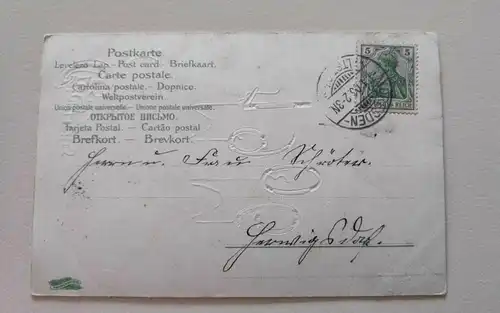 Postkarte
Levelező Lap. - Post card. - Briefkaart.
Carte postale.
Cartolina postale. - Dopnice.
Weltpostverein.
Union postale universelle. - Unione postale universale.
ОТКРЫТОЕ ПИСЬМО.
Tarjeta Postal. - Cartão postal
Brefkort. - Brevkort.
5 5
SDEN-
Herrn u. Frau Schröter.
Herwigsdorf.